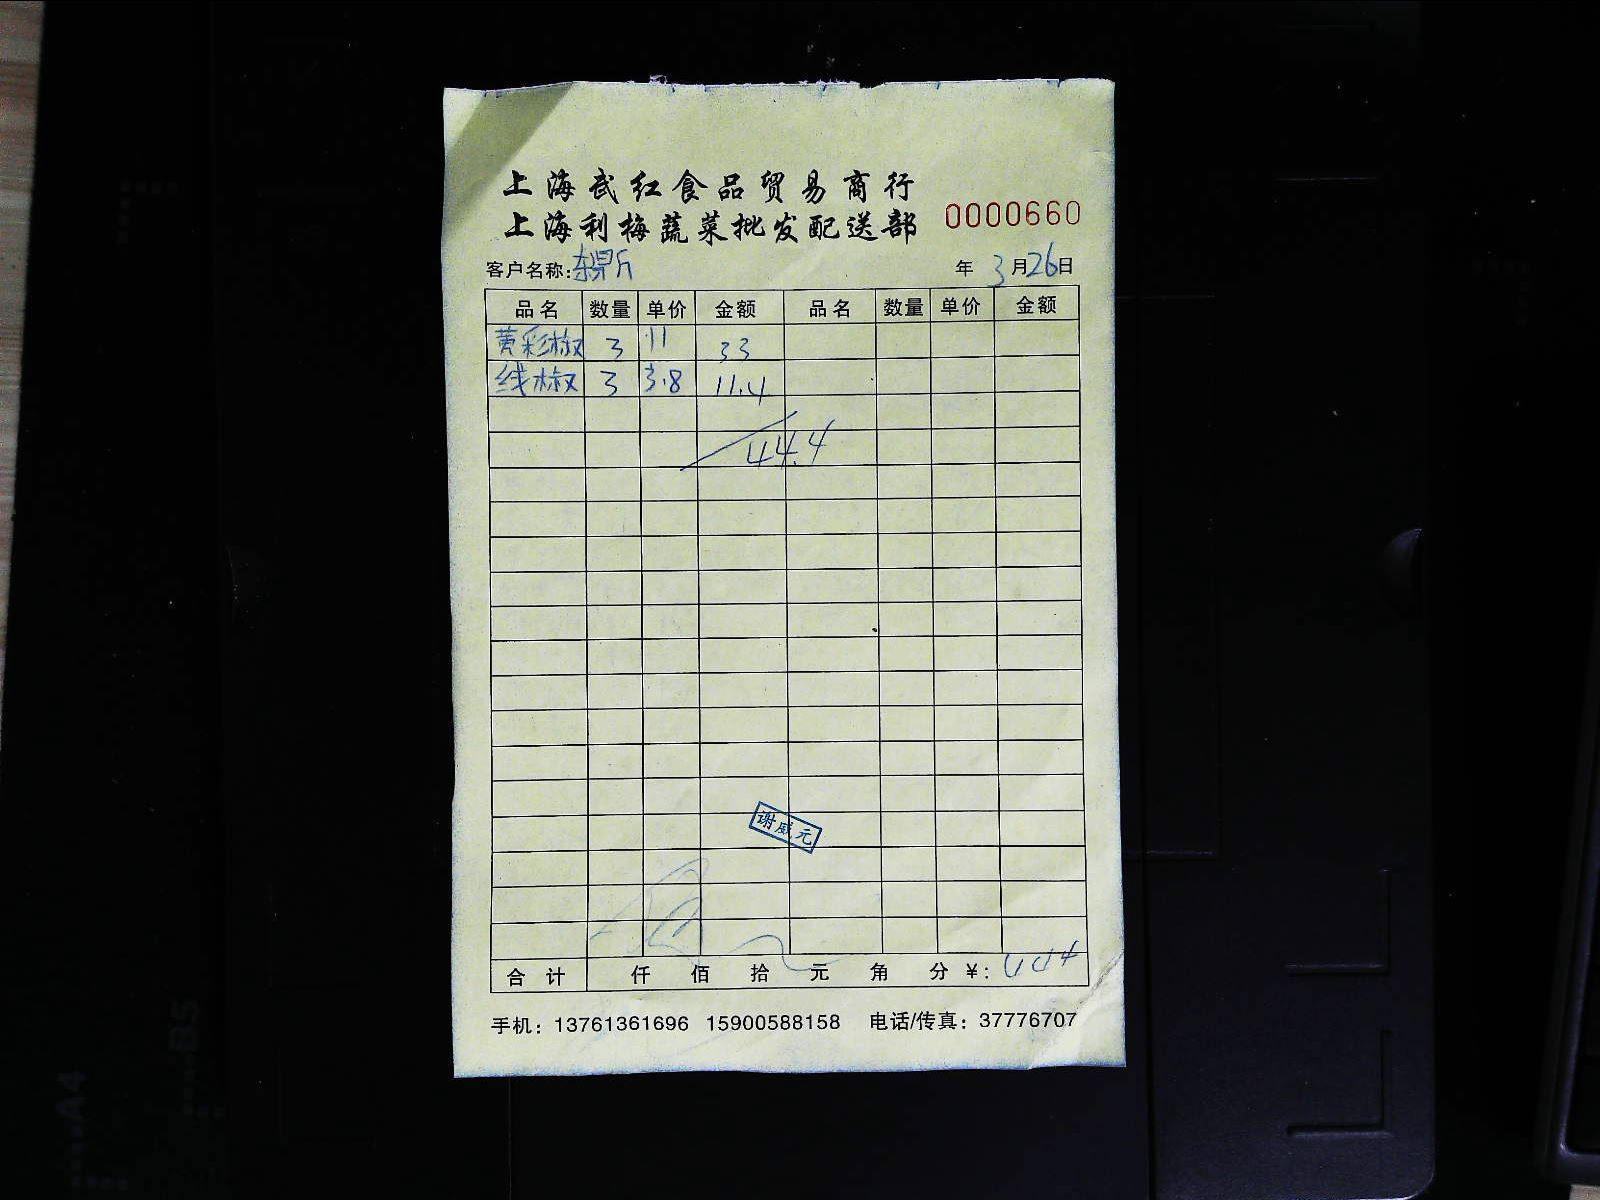 上海武红食品贸易商行
上海利梅蔬菜批发配送部 0000660
客户名称: 年 3月26日
品名 数量 单价 金额 品名 数量 单价 金额
黄彩椒 3 11 33
线椒 3 3.8 11.4
44.4
谢威元
合计 仟 佰 拾 元 角 分 ¥: 444
手机: 13761361696 15900588158 电话/传真: 37776707
B5
A4